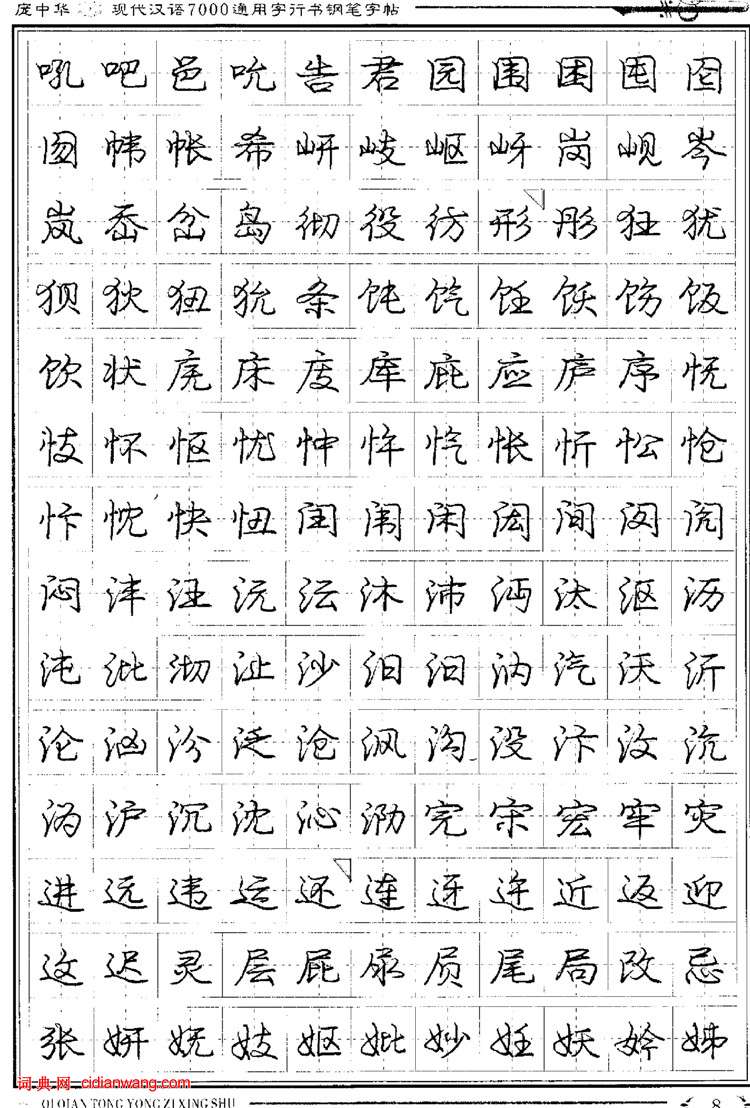 庞中华 现代汉语7000通用字行书钢笔字帖
吼吧邑吮告君园围困囤囵
囫帏帐希岍岐岖岈岗岘岑
岚岙岔岛彻役彷形彤狂犹
狈狄狃狁条饨饩饪饫饬饭
饮状庑床庋库庇应庐序怃
忮怀怄忧忡忤忾怅忻忪怆
忭忱快忸闰闱闲闳间闵闶
闷沣汪沅沄沐沛沔汰沤沥
沌沘沏沚沙汨汩汭汽沃沂
沦汹汾泛沧沨沟没汴汶沆
沩沪沉沈沁泐完宋宏牢灾
进远违运还连迓迕近返迎
这迟灵层屁尿屃尾局改忌
张妍妩妓妪妣妙妊妖妗姊
词典网 cidianwang.com
QI QIAN TONG YONG ZI XING SHU 8